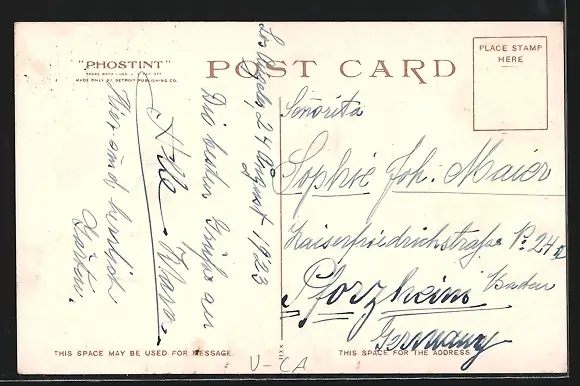 "PHOSTINT"
MADE ONLY BY DETROIT PUBLISHING CO.
POST CARD
PLACE STAMP
HERE
Los Angeles, 24 August 1923
Die besten Grüße an
Alle
Hier sind herrlich
Señorita
Sophie Joh. Maier
Kaiserfriedrichstraße No. 24 II
Pforzheim Baden
Germany
THIS SPACE MAY BE USED FOR MESSAGE.
THIS SPACE FOR THE ADDRESS
V-CA